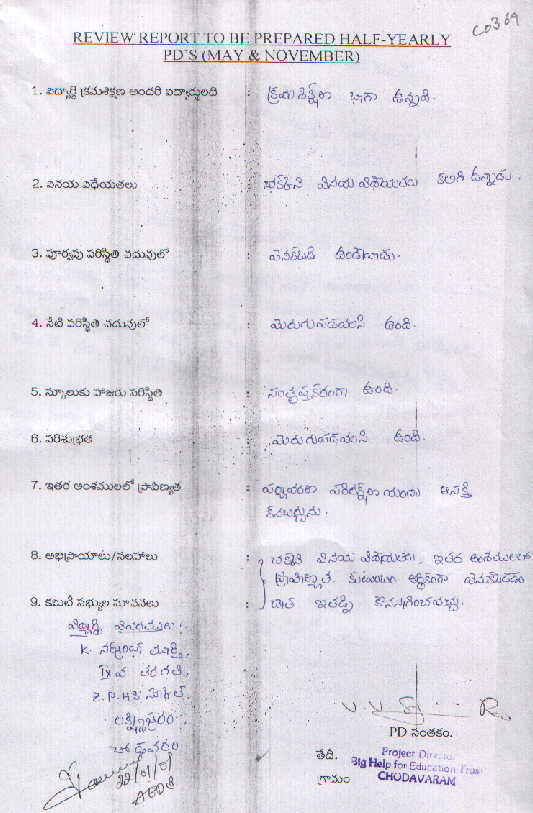 C0369
REVIEW REPORT TO BE PREPARED HALF-YEARLY
PD'S (MAY & NOVEMBER)
1. విద్యార్థి క్రమశిక్షణ అందరి విద్యార్థులతో : క్రమశిక్షణ బాగా ఉన్నది.
2. వినయ విధేయతలు : వినయ విధేయతలు కలిగి ఉన్నాడు.
3. పూర్వపు పరిస్థితి చదువులో : వెనకబడి ఉండేవాడు.
4. నేటి పరిస్థితి చదువులో : మెరుగుపడవలసి ఉంది.
5. స్కూలుకు హాజరు పరిస్థితి : సంతృప్తికరంగా ఉంది.
6. పరిశుభ్రత : మెరుగుపడవలసి ఉంది.
7. ఇతర అంశములలో ప్రావీణ్యత : పర్యావరణ పరిరక్షణ యందు ఆసక్తి
కనబర్చును.
8. అభిప్రాయాలు/సలహాలు : వినయ విధేయతలు, ఇతర అంశములలో
ప్రావీణ్యత, కుటుంబం ఆర్థికంగా వెనకబడడం
9. కమిటీ సభ్యుల సూచనలు : వలన ఇతడిని కొనసాగించవచ్చు.
విద్యార్థి వివరములు:
K. నర్సింగ్ మూర్తి,
IX వ తరగతి,
Z.P.H స్కూల్,
లక్ష్మీపురం,
చోడవరం
22/01/01
PD సంతకం.
తేది.
గ్రామం
Project Director
Big Help for Education Trust
CHODAVARAM